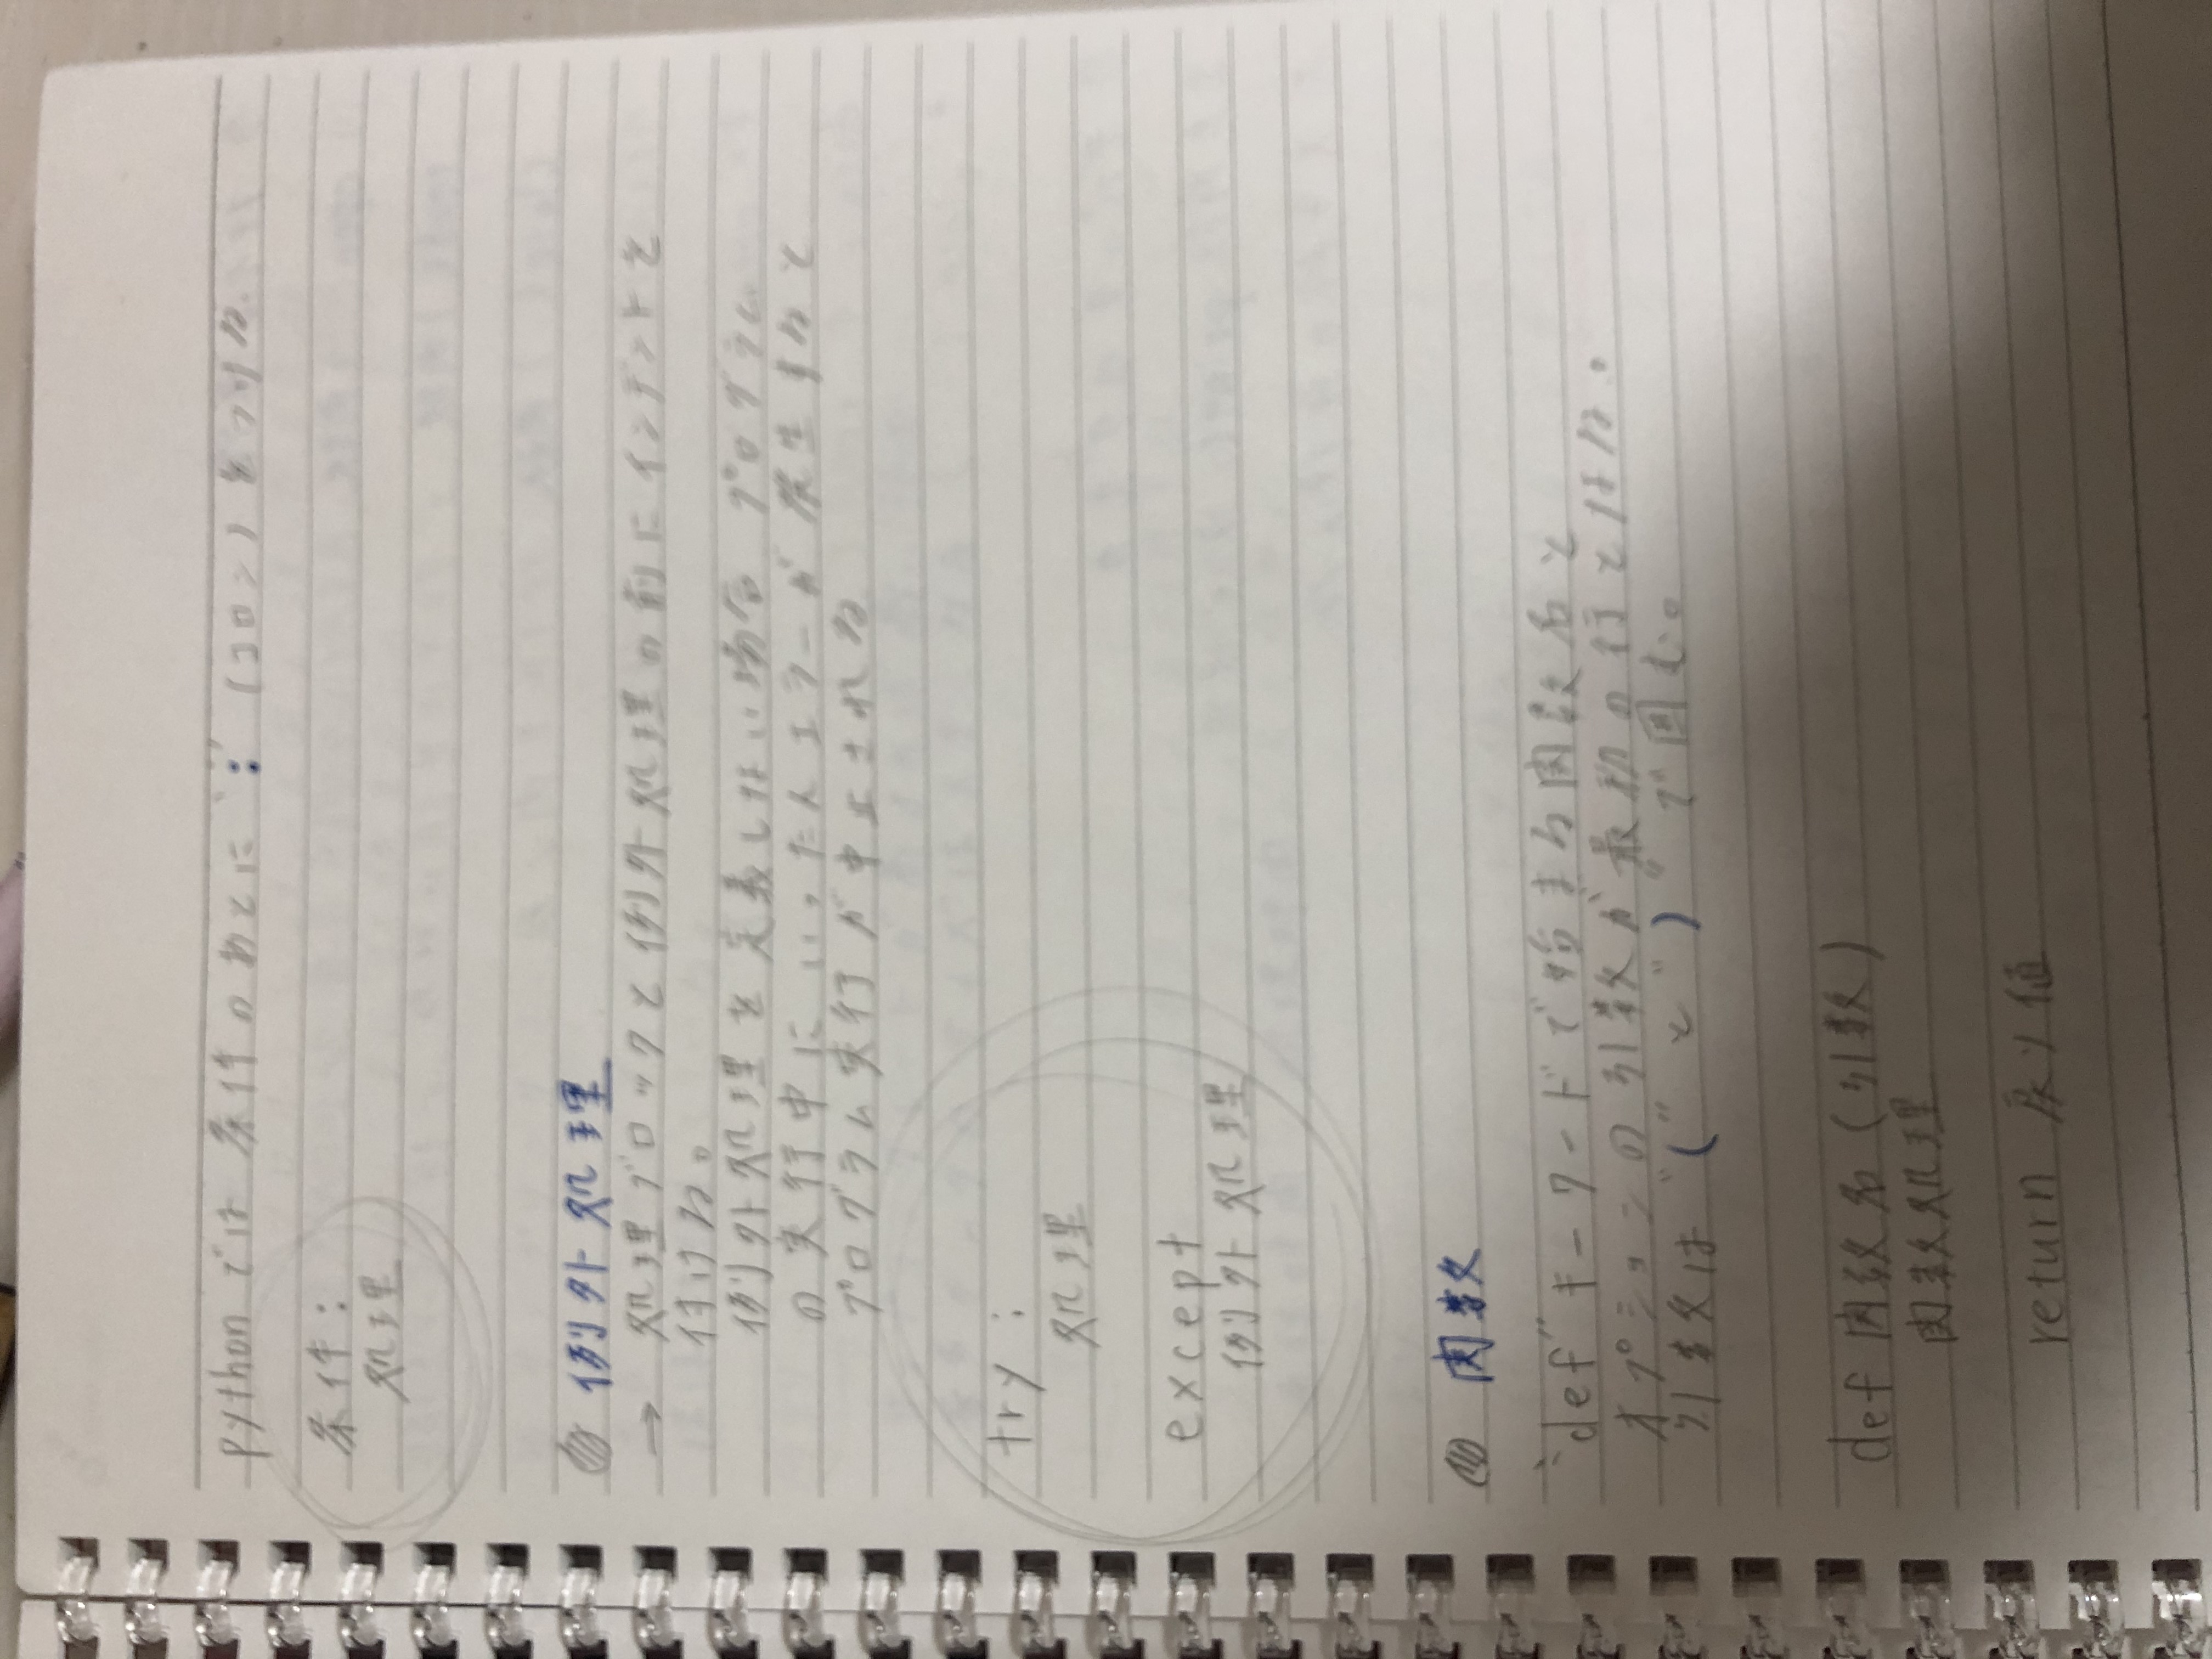 python では 条件のあとに “:” (コロン) をつける
条件:
処理
例外処理
→ 処理ブロックと例外処理の前にインデントを
付ける。
例外処理を定義しない場合 プログラム
の実行中に いったんエラーが発生すると
プログラム実行が中止される
try :
処理
except
例外処理
関数
“def” キーワードで始まる関数名と
オプションの引数が最初の行となる。
引数は “(” と “)” で囲む。
def 関数名 (引数)
関数処理
return 戻り値